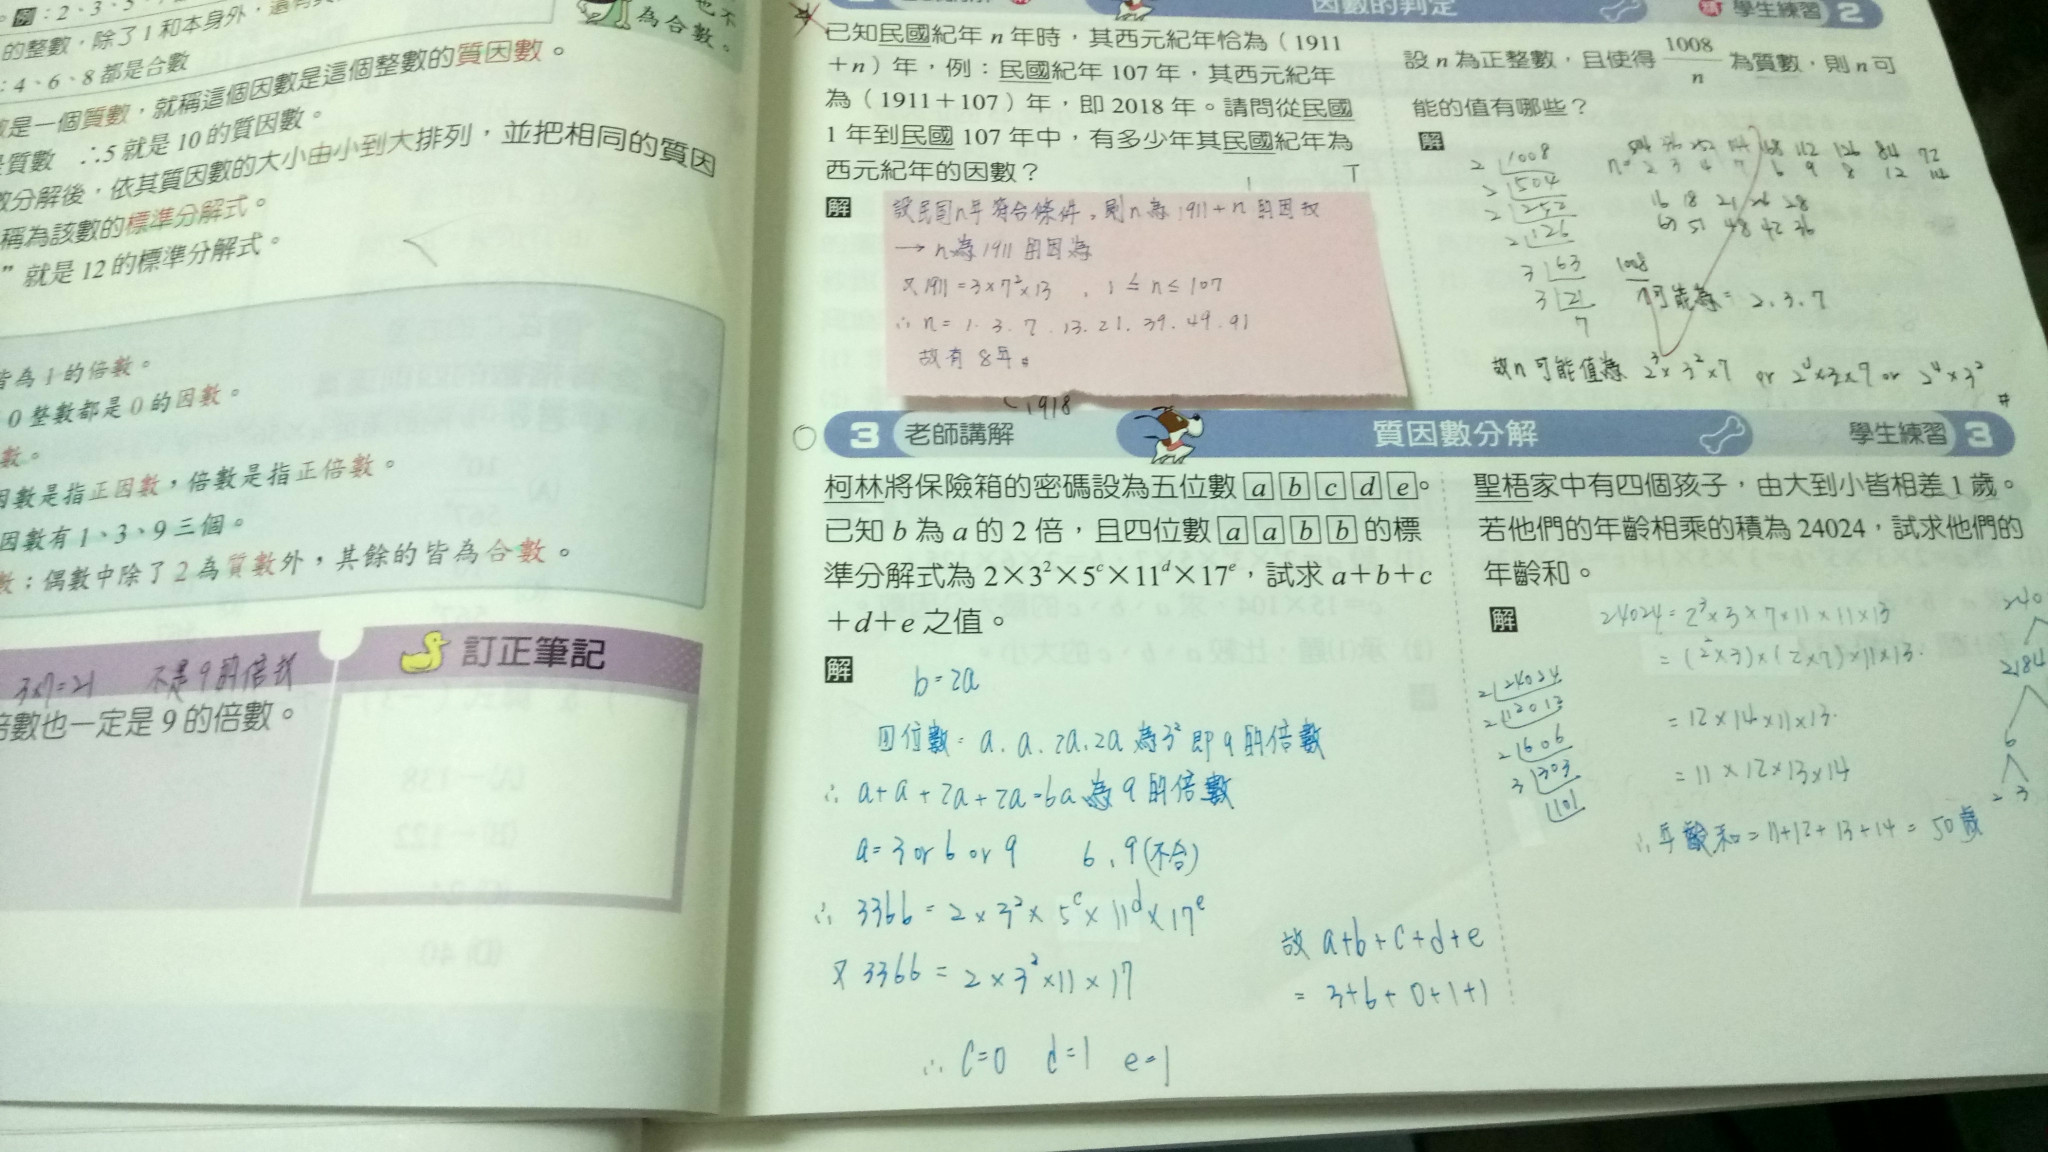 例：2、3、5、
的整數，除了1和本身外，還有
：4、6、8都是合數
也不
為合數。
是一個質數，就稱這個因數是這個整數的質因數。
質數 ∴5就是10的質因數。
數分解後，依其質因數的大小由小到大排列，並把相同的質因
稱為該數的標準分解式。
”就是12的標準分解式。
皆為1的倍數。
0整數都是0的因數。
數。
因數是指正因數，倍數是指正倍數。
因數有1、3、9三個。
數：偶數中除了2為質數外，其餘的皆為合數。
3×7=21 不是9的倍數
倍數也一定是9的倍數。
訂正筆記
因數的判定
學生練習 2
已知民國紀年n年時，其西元紀年恰為（1911
＋n）年，例：民國紀年107年，其西元紀年
為（1911＋107）年，即2018年。請問從民國
1年到民國107年中，有多少年其民國紀年為
西元紀年的因數？
解
設民國n年符合條件，則n為1911+n的因數
→n為1911的因為
又1911=3×7²×13，1≤n≤107
∴n=1.3.7.13.21.39.49.91
故有8年。
1918
設n為正整數，且使得1008/n為質數，則n可
能的值有哪些？
解
2 1008
2 504
2 252
2 126
3 63
3 21
7
168 112 126 84 72
n= 2 3 4 7 6 9 8 12 14
16 18 21 28
48 42 36
1008
n可能為=2.3.7
故n可能值為 2³×3²×7 or 2⁴×3×7 or 2⁴×3²
#
3 老師講解
質因數分解
學生練習 3
柯林將保險箱的密碼設為五位數abcde。
已知b為a的2倍，且四位數aabb的標
準分解式為2×3²×5ᶜ×11ᵈ×17ᵉ，試求a＋b＋c
＋d＋e之值。
解
b=2a
四位數=a.a.2a.2a為3²即9的倍數
∴a+a+2a+2a=6a為9的倍數
a=3 or 6 or 9 6.9(不合)
∴3366=2×3²×5ᶜ×11ᵈ×17ᵉ
又3366=2×3²×11×17
∴C=0 d=1 e=1
故a+b+c+d+e
=3+6+0+1+1
聖梧家中有四個孩子，由大到小皆相差1歲。
若他們的年齡相乘的積為24024，試求他們的
年齡和。
解
24024=2³×3×7×11×11×13
=(2²×3)×(2×7)×11×13.
=12×14×11×13.
=11×12×13×14
∴年齡和=11+12+13+14=50歲
2 24024
2 12012
2 606
3 303
101
240
2184
6
2 3